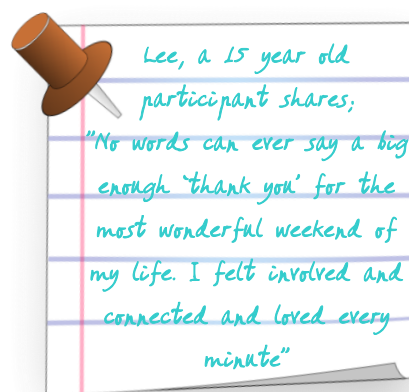 Lee, a 15 year old
participant shares;
"No words can ever say a big
enough 'thank you' for the
most wonderful weekend of
my life. I felt involved and
connected and loved every
minute"